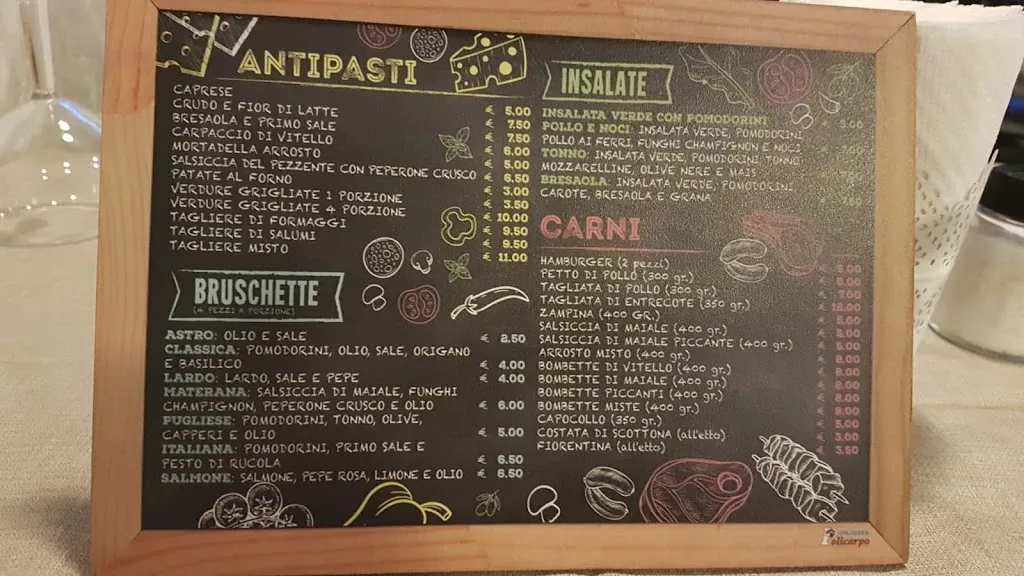 ANTIPASTI
CAPRESE € 5.00
CRUDO E FIOR DI LATTE € 7.50
BRESAOLA E PRIMO SALE € 7.50
CARPACCIO DI VITELLO € 6.00
MORTADELLA ARROSTO € 5.00
SALSICCIA DEL PEZZENTE CON PEPERONE CRUSCO € 6.50
PATATE AL FORNO € 3.00
VERDURE GRIGLIATE 1 PORZIONE € 3.50
VERDURE GRIGLIATE 4 PORZIONE € 10.00
TAGLIERE DI FORMAGGI € 9.50
TAGLIERE DI SALUMI € 9.50
TAGLIERE MISTO € 11.00
BRUSCHETTE
(4 PEZZI A PORZIONE)
ASTRO: OLIO E SALE € 2.50
CLASSICA: POMODORINI, OLIO, SALE, ORIGANO
E BASILICO € 4.00
LARDO: LARDO, SALE E PEPE € 4.00
MATERANA: SALSICCIA DI MAIALE, FUNGHI
CHAMPIGNON, PEPERONE CRUSCO E OLIO € 6.00
PUGLIESE: POMODORINI, TONNO, OLIVE,
CAPPERI E OLIO € 5.00
ITALIANA: POMODORINI, PRIMO SALE E
PESTO DI RUCOLA € 6.50
SALMONE: SALMONE, PEPE ROSA, LIMONE E OLIO € 6.50
INSALATE
INSALATA VERDE CON POMODORINI
POLLO E NOCI: INSALATA VERDE, POMODORINI
POLLO AI FERRI, FUNGHI CHAMPIGNON E NOCI
TONNO: INSALATA VERDE, POMODORINI TONNO,
MOZZARELLINE, OLIVE NERE E MAIS
BRESAOLA: INSALATA VERDE, POMODORINI,
CAROTE, BRESAOLA E GRANA
CARNI
HAMBURGER (2 pezzi)
PETTO DI POLLO (300 gr.)
TAGLIATA DI POLLO (300 gr.)
TAGLIATA DI ENTRECOTE (350 gr.)
ZAMPINA (400 GR.)
SALSICCIA DI MAIALE (400 gr.)
SALSICCIA DI MAIALE PICCANTE (400 gr.)
ARROSTO MISTO (400 gr.)
BOMBETTE DI VITELLO (400 gr.)
BOMBETTE DI MAIALE (400 gr.)
BOMBETTE PICCANTI (400 gr.)
BOMBETTE MISTE (400 gr.)
CAPOCOLLO (350 gr.)
COSTATA DI SCOTTONA (all'etto) € 3.00
FIORENTINA (all'etto) € 3.50
Policarpo